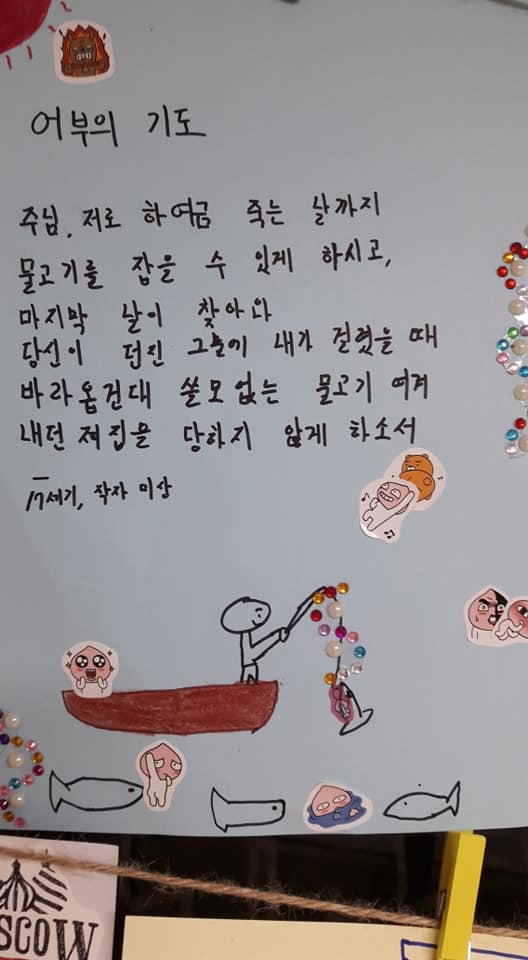 어부의 기도
주님, 저로 하여금 죽는 날까지
물고기를 잡을 수 있게 하시고,
마지막 날이 찾아와
당신이 던진 그물에 내가 걸렸을 때
바라옵건대 쓸모없는 물고기 여겨
내던져짐을 당하지 않게 하소서
17세기, 작자 미상
SCOW